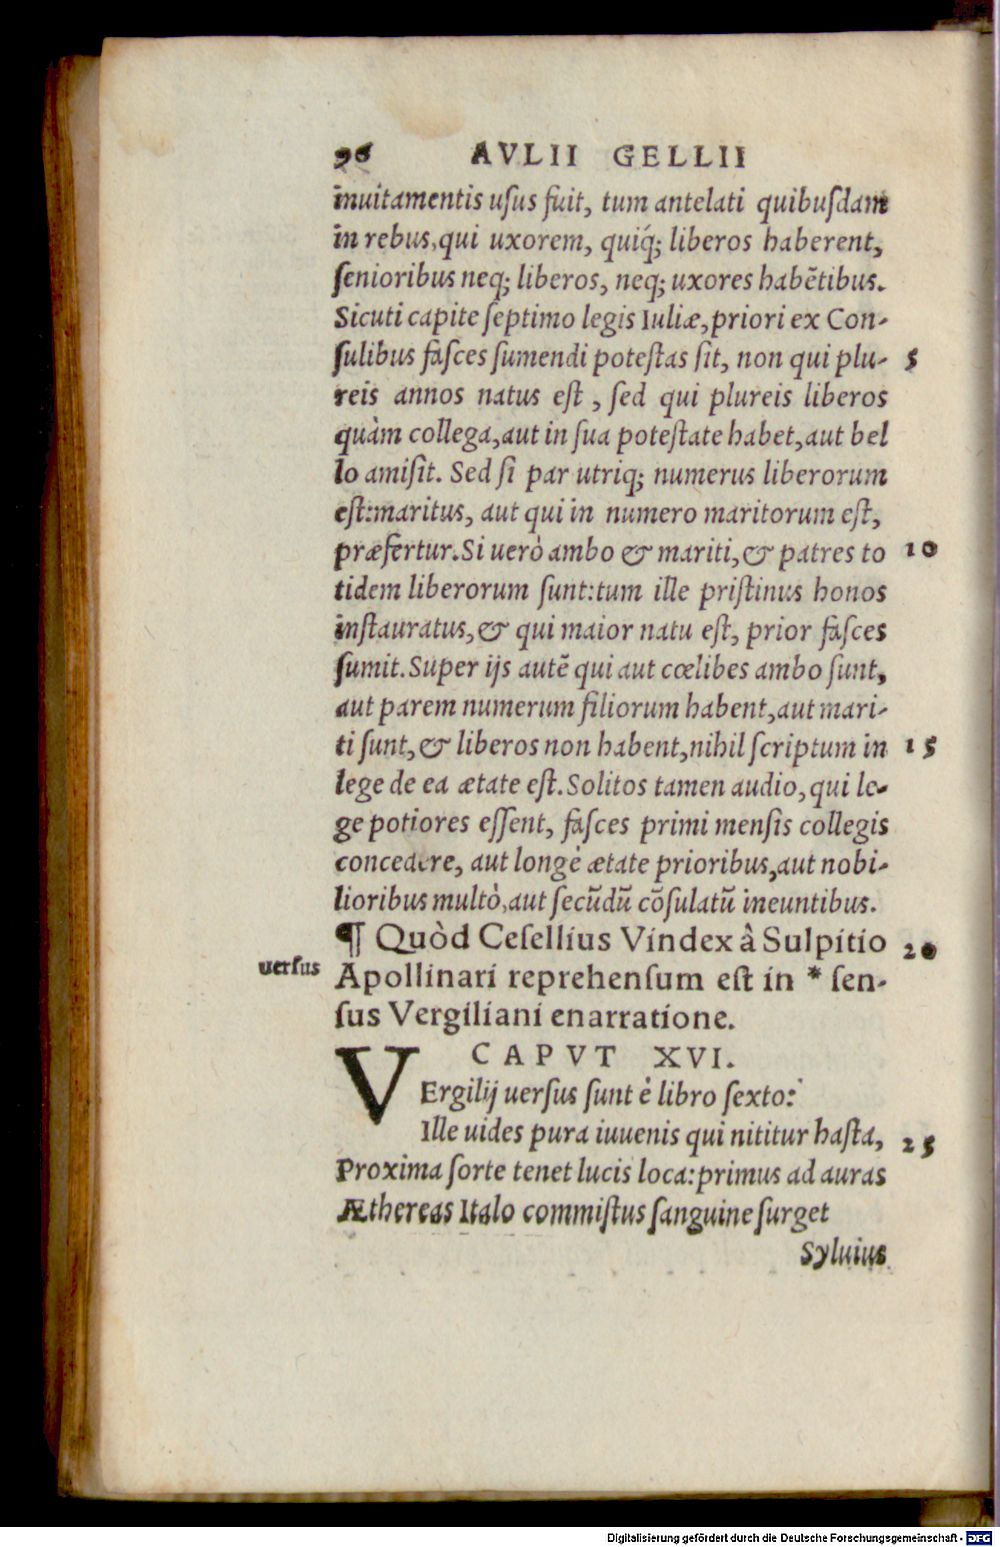 96 AVLII GELLII
inuitamentis uſus fuit, tum antelati quibuſdam
in rebus, qui uxorem, quiq́; liberos haberent,
ſenioribus neq; liberos, neq; uxores habētibus.
Sicuti capite ſeptimo legis Iuliæ, priori ex Con-
ſulibus faſces ſumendi poteſtas ſit, non qui plu- 5
reis annos natus eſt, ſed qui plureis liberos
quàm collega, aut in ſua poteſtate habet, aut bel
lo amiſit. Sed ſi par utriq; numerus liberorum
eſt: maritus, aut qui in numero maritorum eſt,
præfertur. Si uerò ambo & mariti, & patres to 10
tidem liberorum ſunt: tum ille priſtinus honos
inſtauratus, & qui maior natu eſt, prior faſces
ſumit. Super ijs autē qui aut cœlibes ambo ſunt,
aut parem numerum filiorum habent, aut mari-
ti ſunt, & liberos non habent, nihil ſcriptum in 15
lege de ea ætate eſt. Solitos tamen audio, qui le-
ge potiores eſſent, faſces primi menſis collegis
concedere, aut longè ætate prioribus, aut nobi-
lioribus multò, aut ſecūdū cōſulatū ineuntibus.
¶ Quòd Ceſellius Vindex â Sulpitio 20
uerſus Apollinari reprehenſum eſt in * ſen-
ſus Vergiliani enarratione.
CAPVT XVI.
VErgilij uerſus ſunt è libro ſexto:
Ille uides pura iuuenis qui nititur haſta, 25
Proxima ſorte tenet lucis loca: primus ad auras
Æthereas Italo commiſtus ſanguine ſurget
Syluius
Digitalisierung gefördert durch die Deutsche Forschungsgemeinschaft - DFG